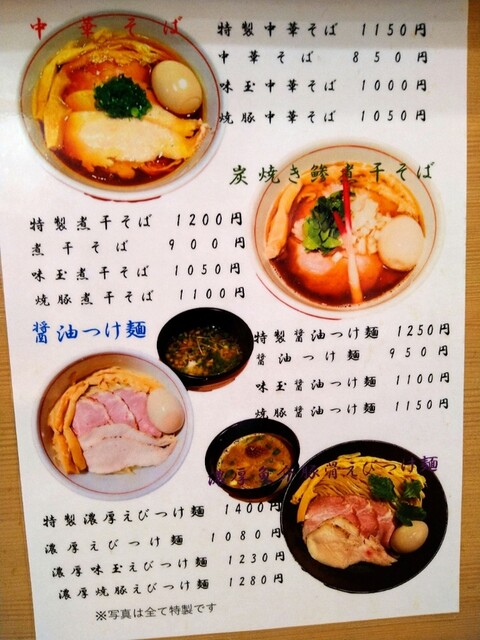 中華そば
特製中華そば 1150円
中華そば 850円
味玉中華そば 1000円
焼豚中華そば 1050円
炭焼き鯵煮干そば
特製煮干そば 1200円
煮干そば 900円
味玉煮干そば 1050円
焼豚煮干そば 1100円
醤油つけ麺
特製醤油つけ麺 1250円
醤油つけ麺 950円
味玉醤油つけ麺 1100円
焼豚醤油つけ麺 1150円
えびつけ麺
特製濃厚えびつけ麺 1400円
濃厚えびつけ麺 1080円
濃厚味玉えびつけ麺 1230円
濃厚焼豚えびつけ麺 1280円
※写真は全て特製です